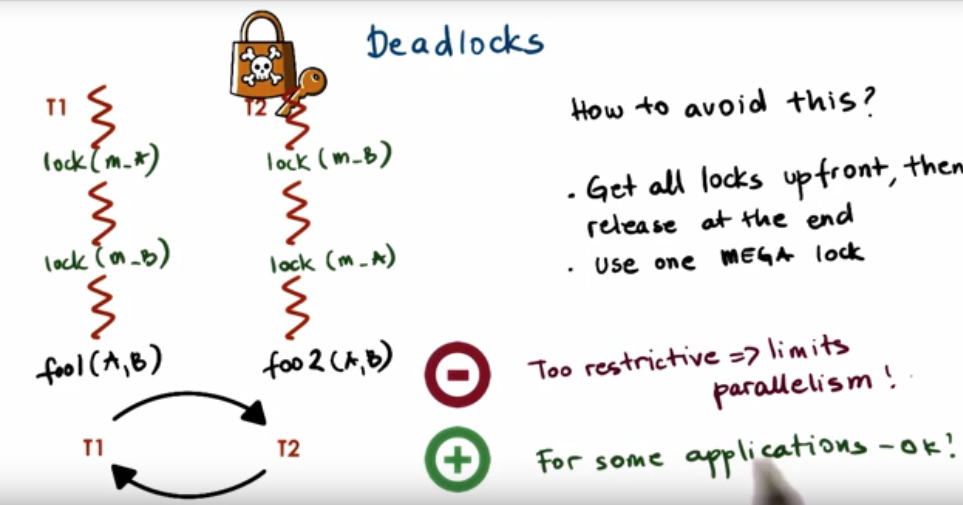 Deadlocks
T1
T2
lock(m_A)
lock (m_B)
lock (m_B)
lock (m_A)
foo1(A,B)
foo2(A,B)
T1
T2
How to avoid this?
. Get all locks upfront, then
release at the end
. Use one MEGA lock
Too restrictive => limits
parallelism!
For some applications - ok!